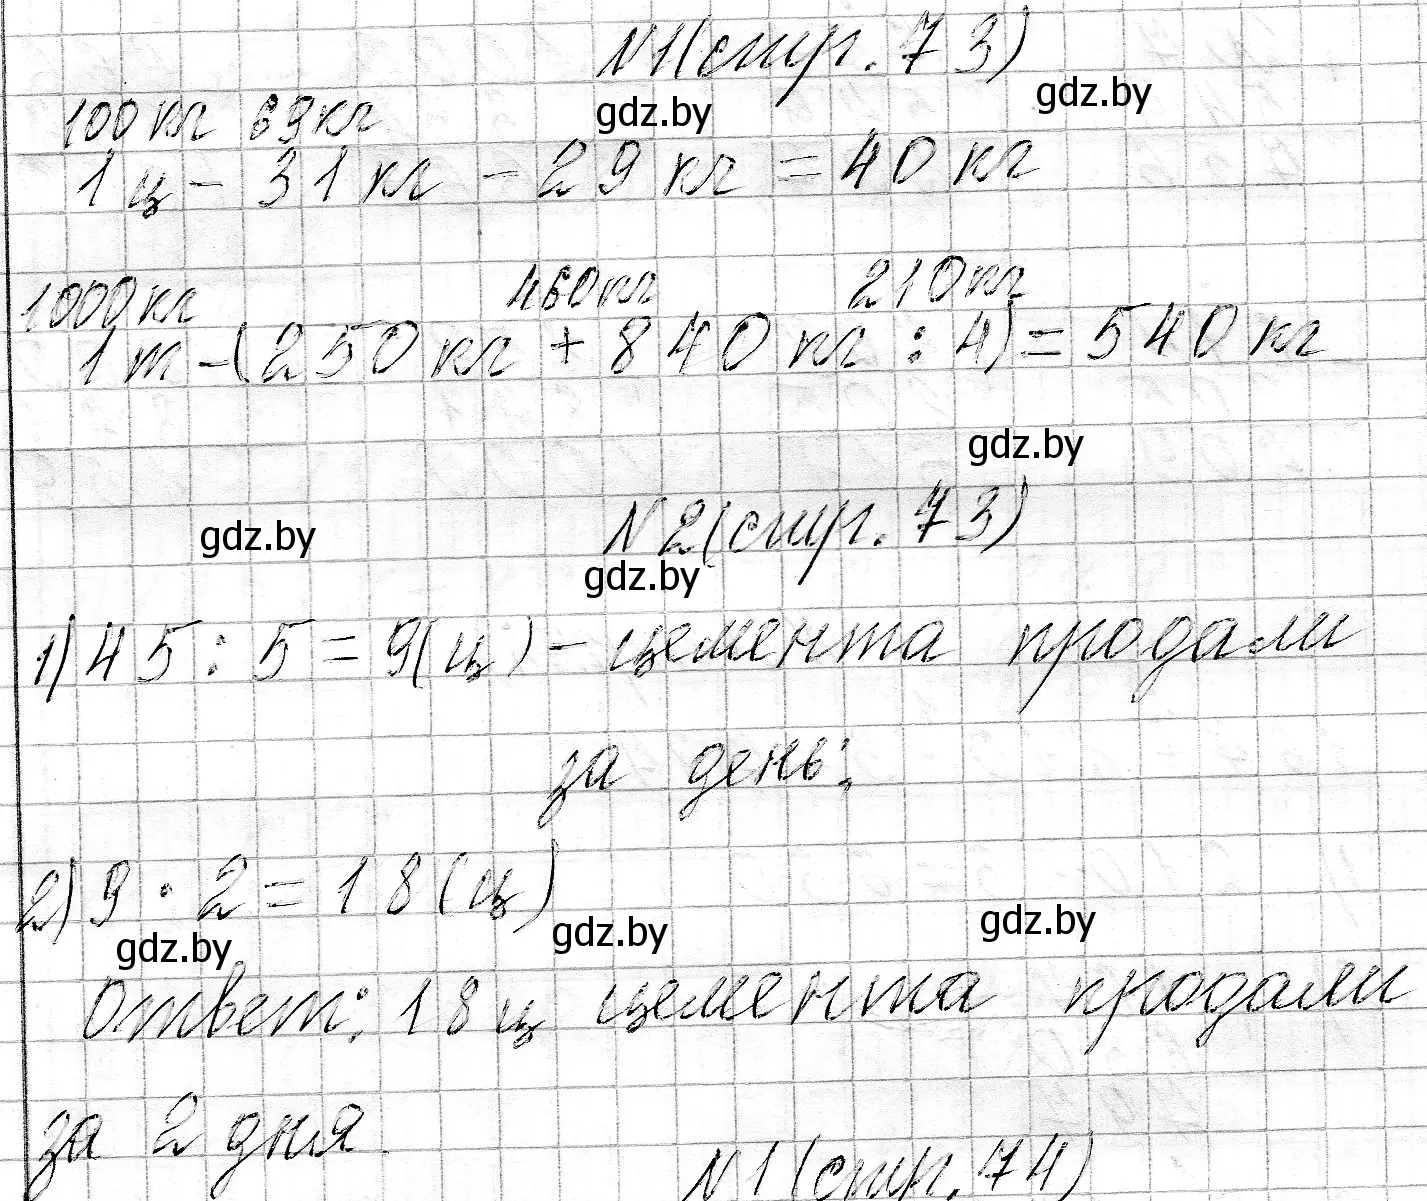 №1(стр. 73)
gdz.by
gdz.by
100кг 69кг
1ц - 31кг - 29кг = 40кг
1000кг 460кг 210кг
1т - (250кг + 840кг : 4) = 540кг
gdz.by
№2(стр. 73)
gdz.by
gdz.by
1) 45 : 5 = 9(ц) - цемента продали
за день;
2) 9 · 2 = 18(ц)
gdz.by
gdz.by
gdz.by
Ответ: 18ц цемента продали
за 2 дня.
№1(стр. 74)